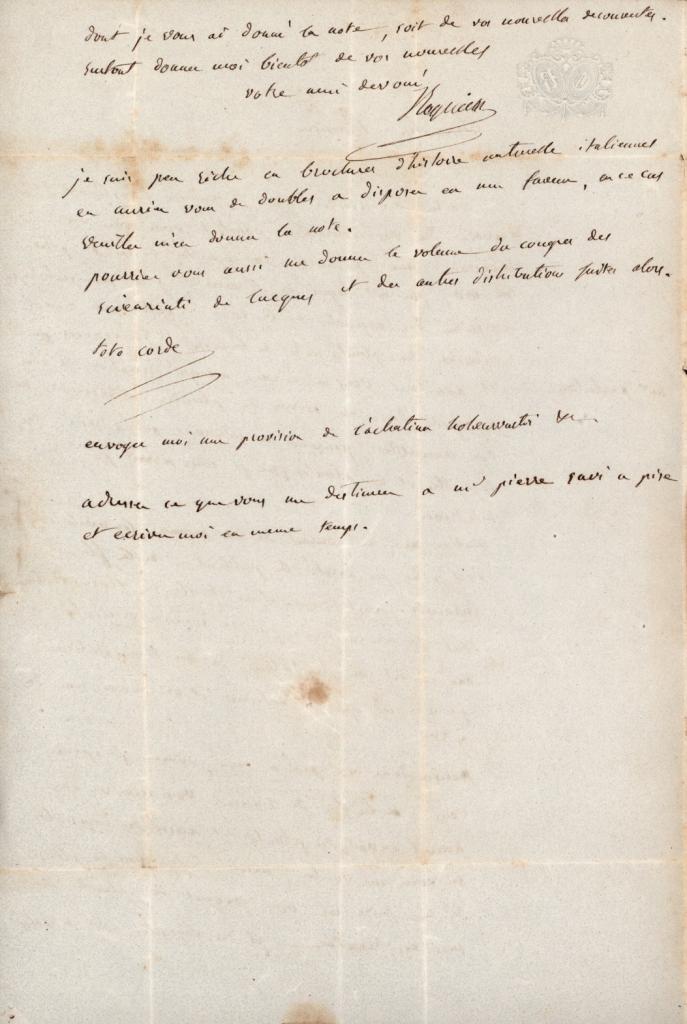 dont je vous ai donné la note, soit de vos nouvelles decouvertes.
surtout donner moi bientot de vos nouvelles
votre ami devoué
Requien
je suis peu riche en brochures d'histoire naturelle italiennes
en auriez vous de doubles a disposer en ma faveur, en ce cas
veuillez m'en donner la note.
pourriez vous aussi me donner le volume du congres des
scienziati de Lucques et des autres distributions faites alors.
toto corde
envoyez moi une provision de l'achatina hohenwarti &c
adressez ce que vous me destinerez a mr pierre savi a pise
et ecrivez moi en meme temps.